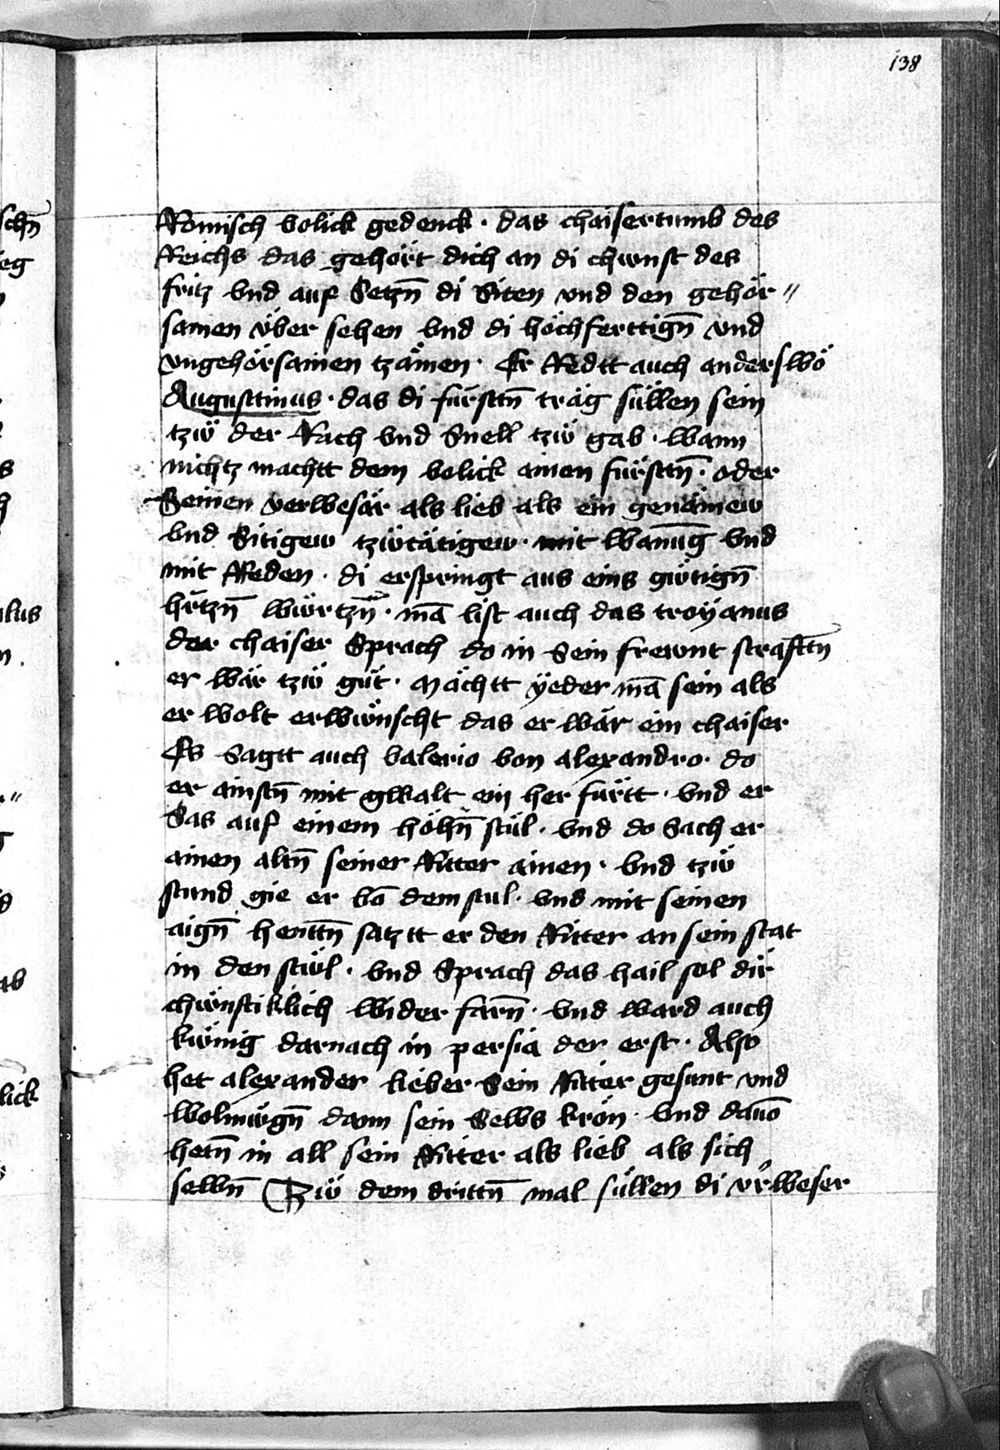 138
Römisch volick gedenck · das chaisertumb des
Reichs das gehört dich an di chunst des
fritz vnd auf Setzn̄ di Siten vnd den gehör〃
samen vber sehen vnd di höchferttign̄ vnd
vngehörsamen tzämen · Er Redtt auch anderswö
Augustinus · das di fürsttn̄ träg süllen sein
tzw̋ der Rach vnd Snell tzw̋ gab · wann
nichtz machtt dem volick ainen fürsttn̄ · oder
Seinen verwesär als lieb als ein genämew
vnd Sitigew tzẅtätigew · mit wanu̅g vnd
mit Reden · di erspringt aus eins gẅtign̄
hr̄tzn̄ würtzn̄ · mā list auch das troyanus
der chaiser Sprach do in Sein frewnt strafttn̄
er wär tzẅ güt · Mächtt yeder mā sein als
er wolt erwünscht das er wär ein chaiser
Es Sagtt auch valerio von alexandro · do
er ainstn̄ mit gwalt ein her fürtt · vnd er
Sas auf einem höhn̄ stül · vnd do Sach er
ainen altn̄ seiner Ritter ainen · vnd tzẅ
stund gie er vō dem stul · vnd mit seinen
aign̄ henttn̄ satztt er den Ritter an sein stat
in den stẅl · vnd Sprach das hail sol dir
chẅnstiklich wider farn̄ · vnd ward auch
kẅnig darnach in persia der erst · Also
het alexander lieber Sein Ritter gesunt vnd
wolmügn̄ dann sein Selbs krön · vnd dauō
hetn̄ in all sein Ritter als lieb als sich
selbn̄ Tzẅ dem drittn̄ mal süllen di vr̊weser